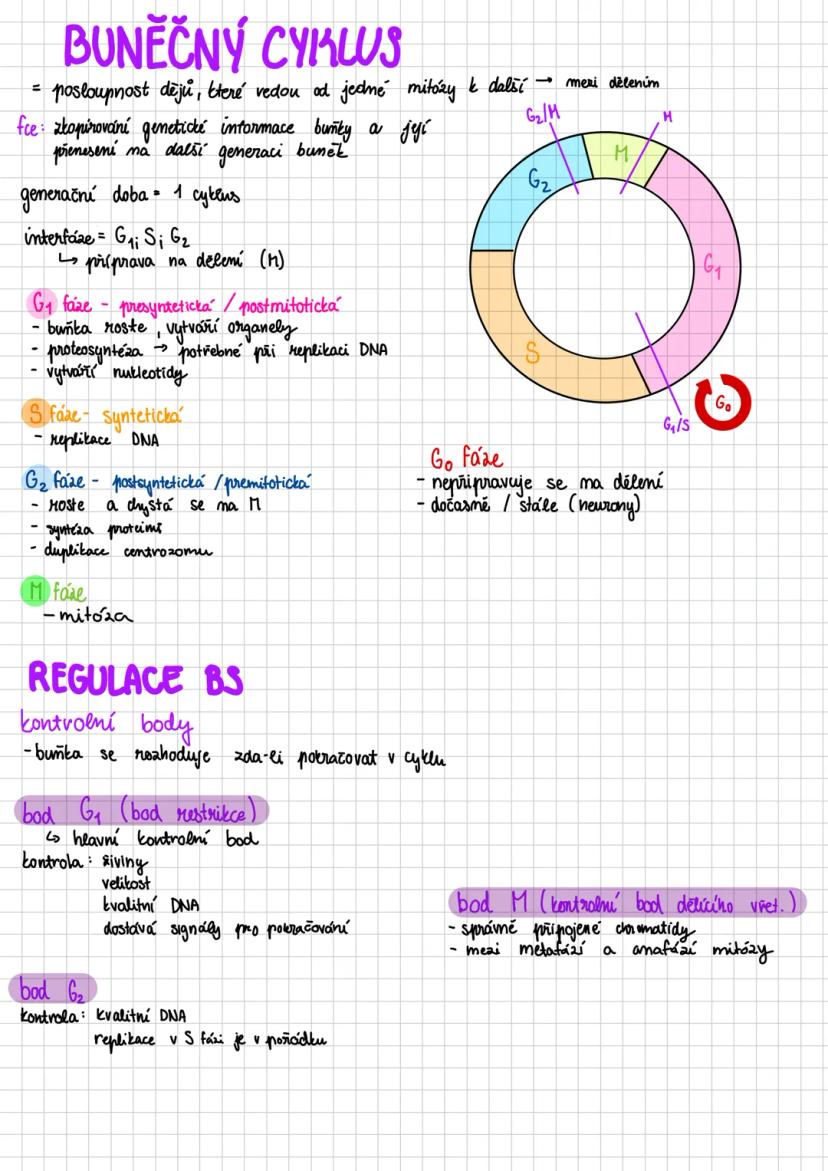 BUNĚČNÝ CYKLUS
= posloupnost dějů, které vedou od jedné mitózy k další → mezi dělením
fce: zkopírování genetické informace buňky a její
přenesení na další generaci buněk
generační doba = 1 cyklus
interfáze = G1; S; G2
↳ příprava na dělení (M)
G1 fáze - presyntetická / postmitotická
- buňka roste, vytváří organely
- proteosyntéza → potřebné při replikaci DNA
- vytváří nukleotidy
S fáze - syntetická
- replikace DNA
G2 fáze - postsyntetická / premitotická
- roste a chystá se na M
- syntéza proteinů
- duplikace centrozomu
M fáze
- mitóza
G2/M
M
M
G2
G1
S
G1/S
G0
G0 fáze
- nepřipravuje se na dělení
- dočasně / stále (neurony)
REGULACE BS
kontrolní body
- buňka se rozhoduje zda-li pokračovat v cyklu
bod G1 (bod restrikce)
↳ hlavní kontrolní bod
kontrola: živiny
velikost
kvalitní DNA
dostává signály pro pokračování
bod M (kontrolní bod dělícího vřet.)
- správně připojené chromatidy
- mezi metafází a anafází mitózy
bod G2
kontrola: kvalitní DNA
replikace v S fázi je v pořádku